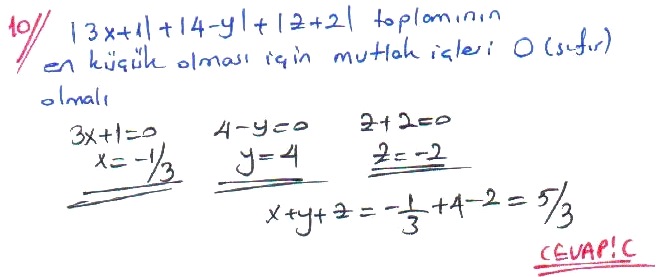 10// |3x+1|+|4-y|+|z+2| toplamının
en küçük olması için mutlak içleri 0 (sıfır)
olmalı
3x+1=0 4-y=0 z+2=0
x=-1/3 y=4 z=-2
x+y+z=-1/3+4-2=5/3
CEVAP:C